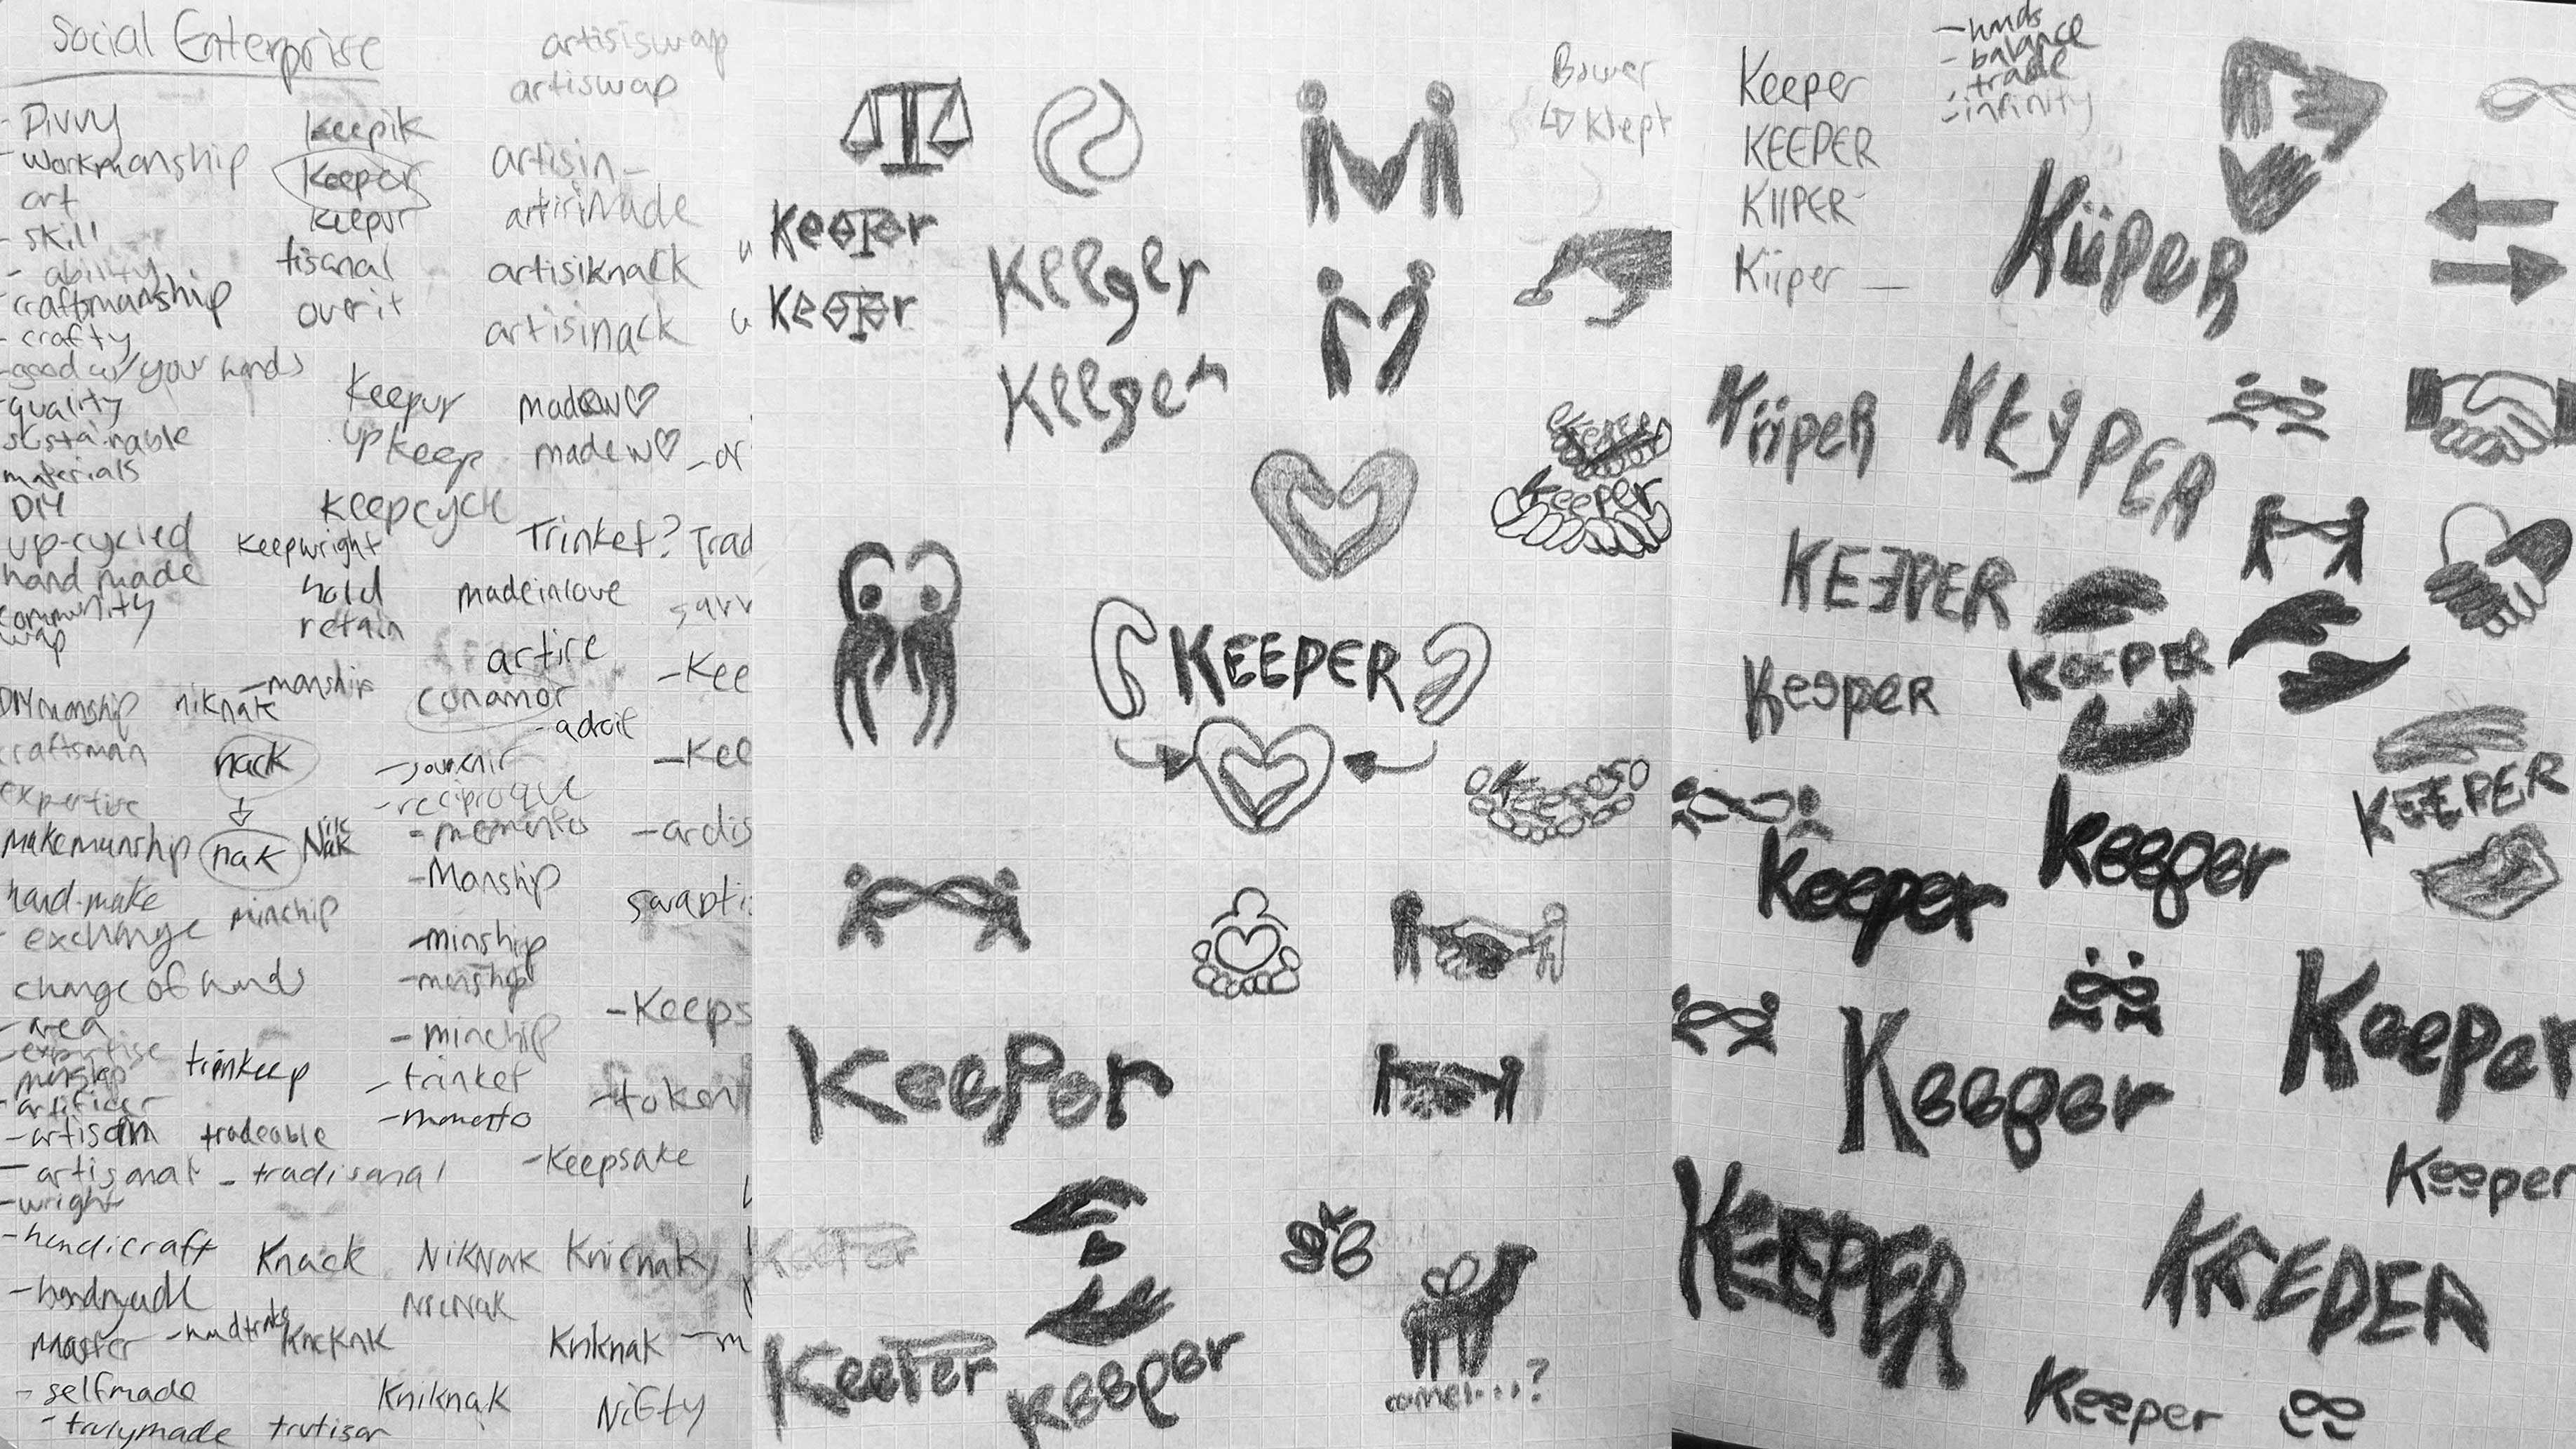 Social Enterprise
- Divvy
- workmanship
art
- skill
- ability
- craftmanship
- crafty
- good w/ your hands
- quality
sustainable
materials
DIY
up-cycled
hand made
community
DIYmanship
craftsman
expertise
makemanship
hand-make
exchange
change of hands
- area
- expertise
- artificer
- artisan
- artisanat
- wright
- handicraft
- handmade
master
- selfmade
- trulymade
keepik
keeper
keepur
tisanal
overit
keepur
upkeep
keepcycle
keepwright
hold
retain
- manship
niknak
nack
nak
Nik
Nak
minchip
trinkeep
tradeable
- tradisanal
Knack
KncKnk
Kniknak
trutisan
artisiswap
artiswap
artisin_
artisiknack
artisinack
madew♡
madew♡
Trinket?
madeinlove
artire
conamor
- adroit
- souvenir
- reciproque
- memento
- Manship
- minship
- menship
- minchip
- trinket
- momento
- Keepsake
NikNak
NicNak
Knicnak
Kniknak
Nifty
- Kee
- Kee
- Keeps
- token
Bower
Klept
Keeper
Keeper
Keeper
Keeper
Keeper
Keeper
KEEPER
Keeper
Keeper
Keeper
Keeper
Keeper
camel...?
- hands
- balance
- trade
- infinity
Keeper
KEEPER
KIIPER
Kiiper
KiipER
KiipER
KEYPER
KEEPER
KEEPER
Keeper
KEEPER
Keeper
Keeper
Keeper
Keeper
Keeper
KEEPER
KEEPER
Keeper